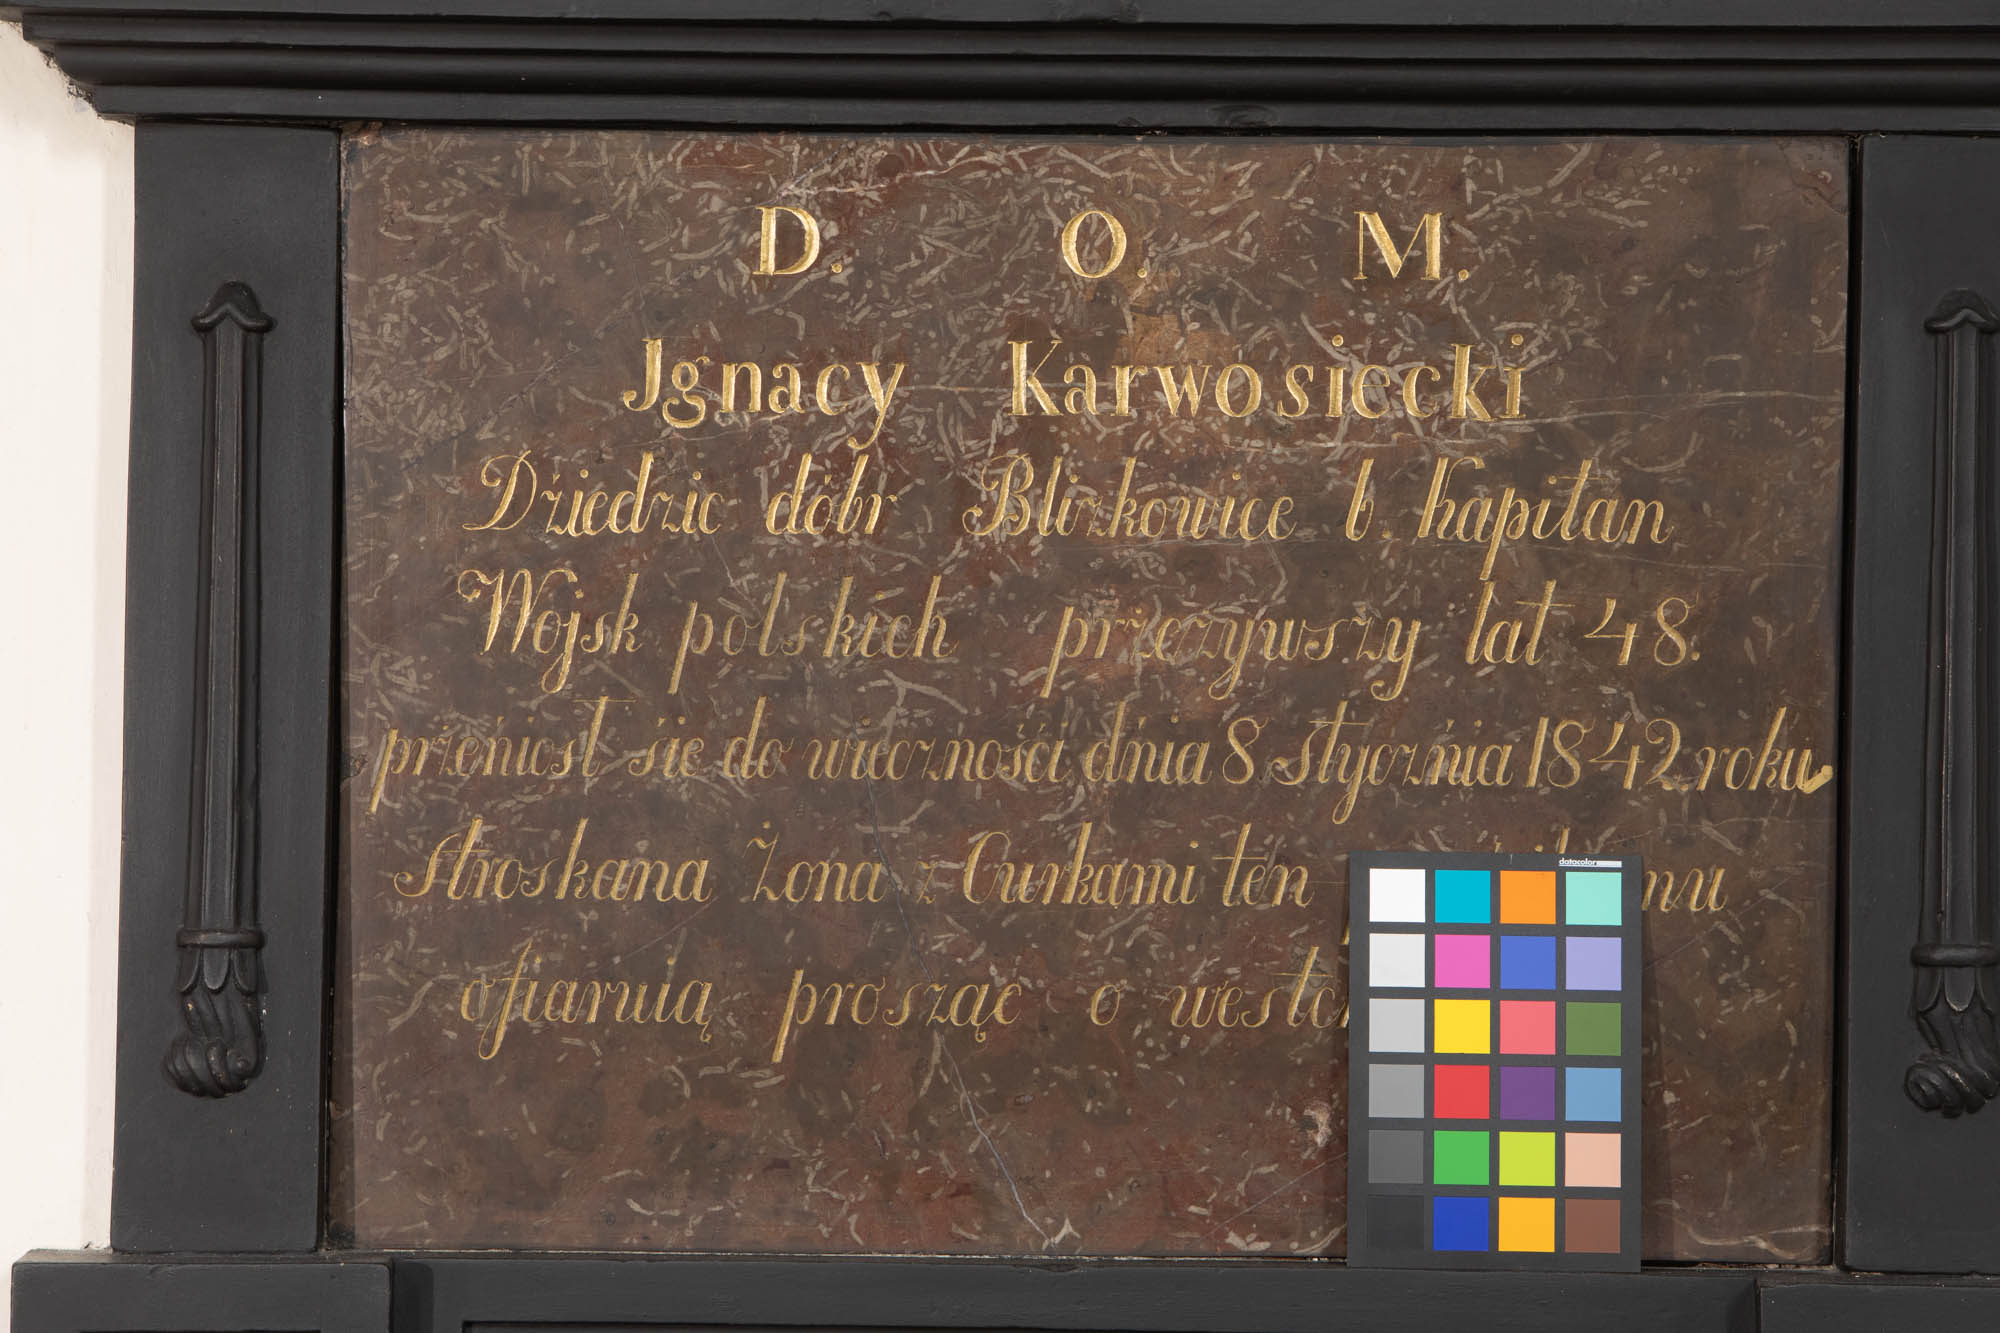 D. O. M.
Jgnacy Karwosiecki
Dźiedzic dóbr Blizkowice b. kapitan
Wojsk polskich przezywszy lat 48.
prźeńiosł śie do wieczności dńia 8 styczńia 1842 roku
stroskana Żona z Curkami ten
ofiaruią prosząc o
datacolor